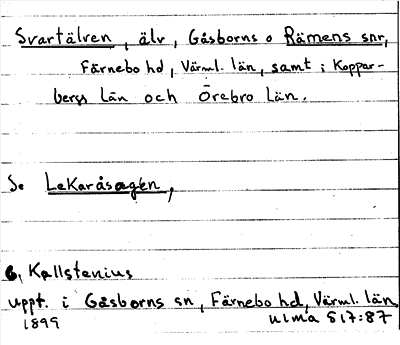 Svartälven, älv, Gåsborns o Rämens snr,
Färnebo hd, Värml. län, samt i Koppar-
bergs län och Örebro län.
Se Lekaråsagen,
G, Kallstenius
uppt. i Gåsborns sn, Färnebo hd, Värml. län
1899 ULMA 817:87